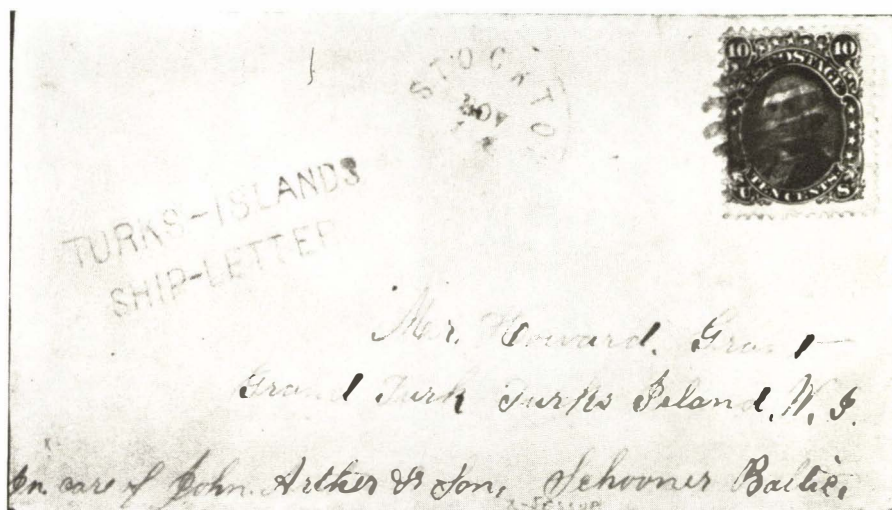 STOCKTO
NOV
10 10
U.S. POSTAGE
TEN CENTS
U S
TURKS-ISLANDS
SHIP-LETTER
Mr. Howard. Grant
Grand Turk Turks Island, W. I.
In care of John. Arther & Son, Schooner Baltic,